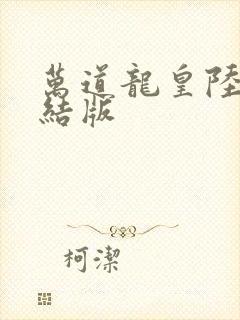 萬道龍皇陸
結版
柯潔